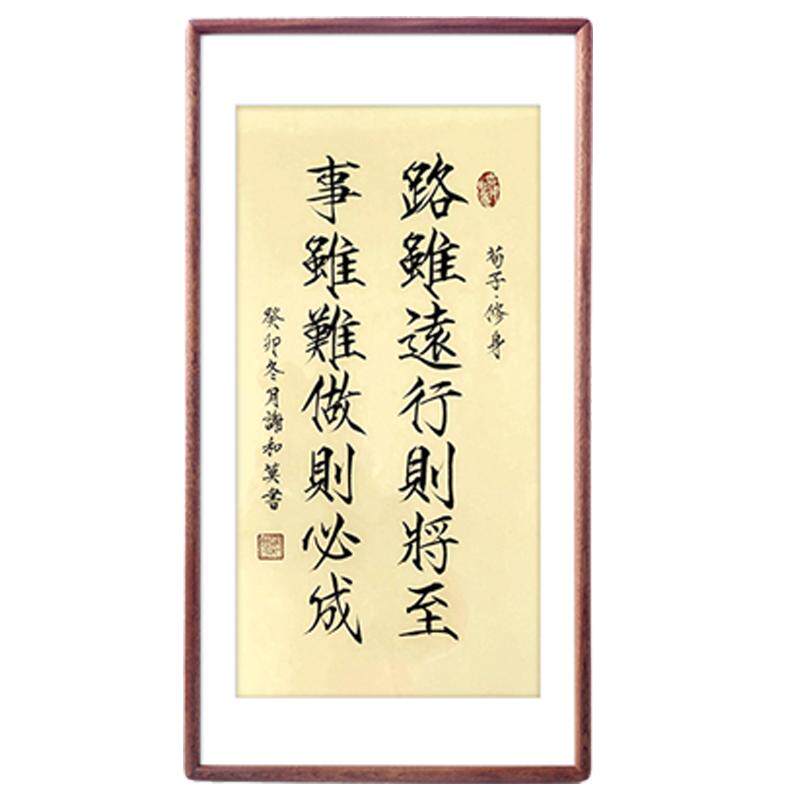 荀子·修身
路雖遠行則將至
事雖難做則必成
癸卯冬月謝和英書